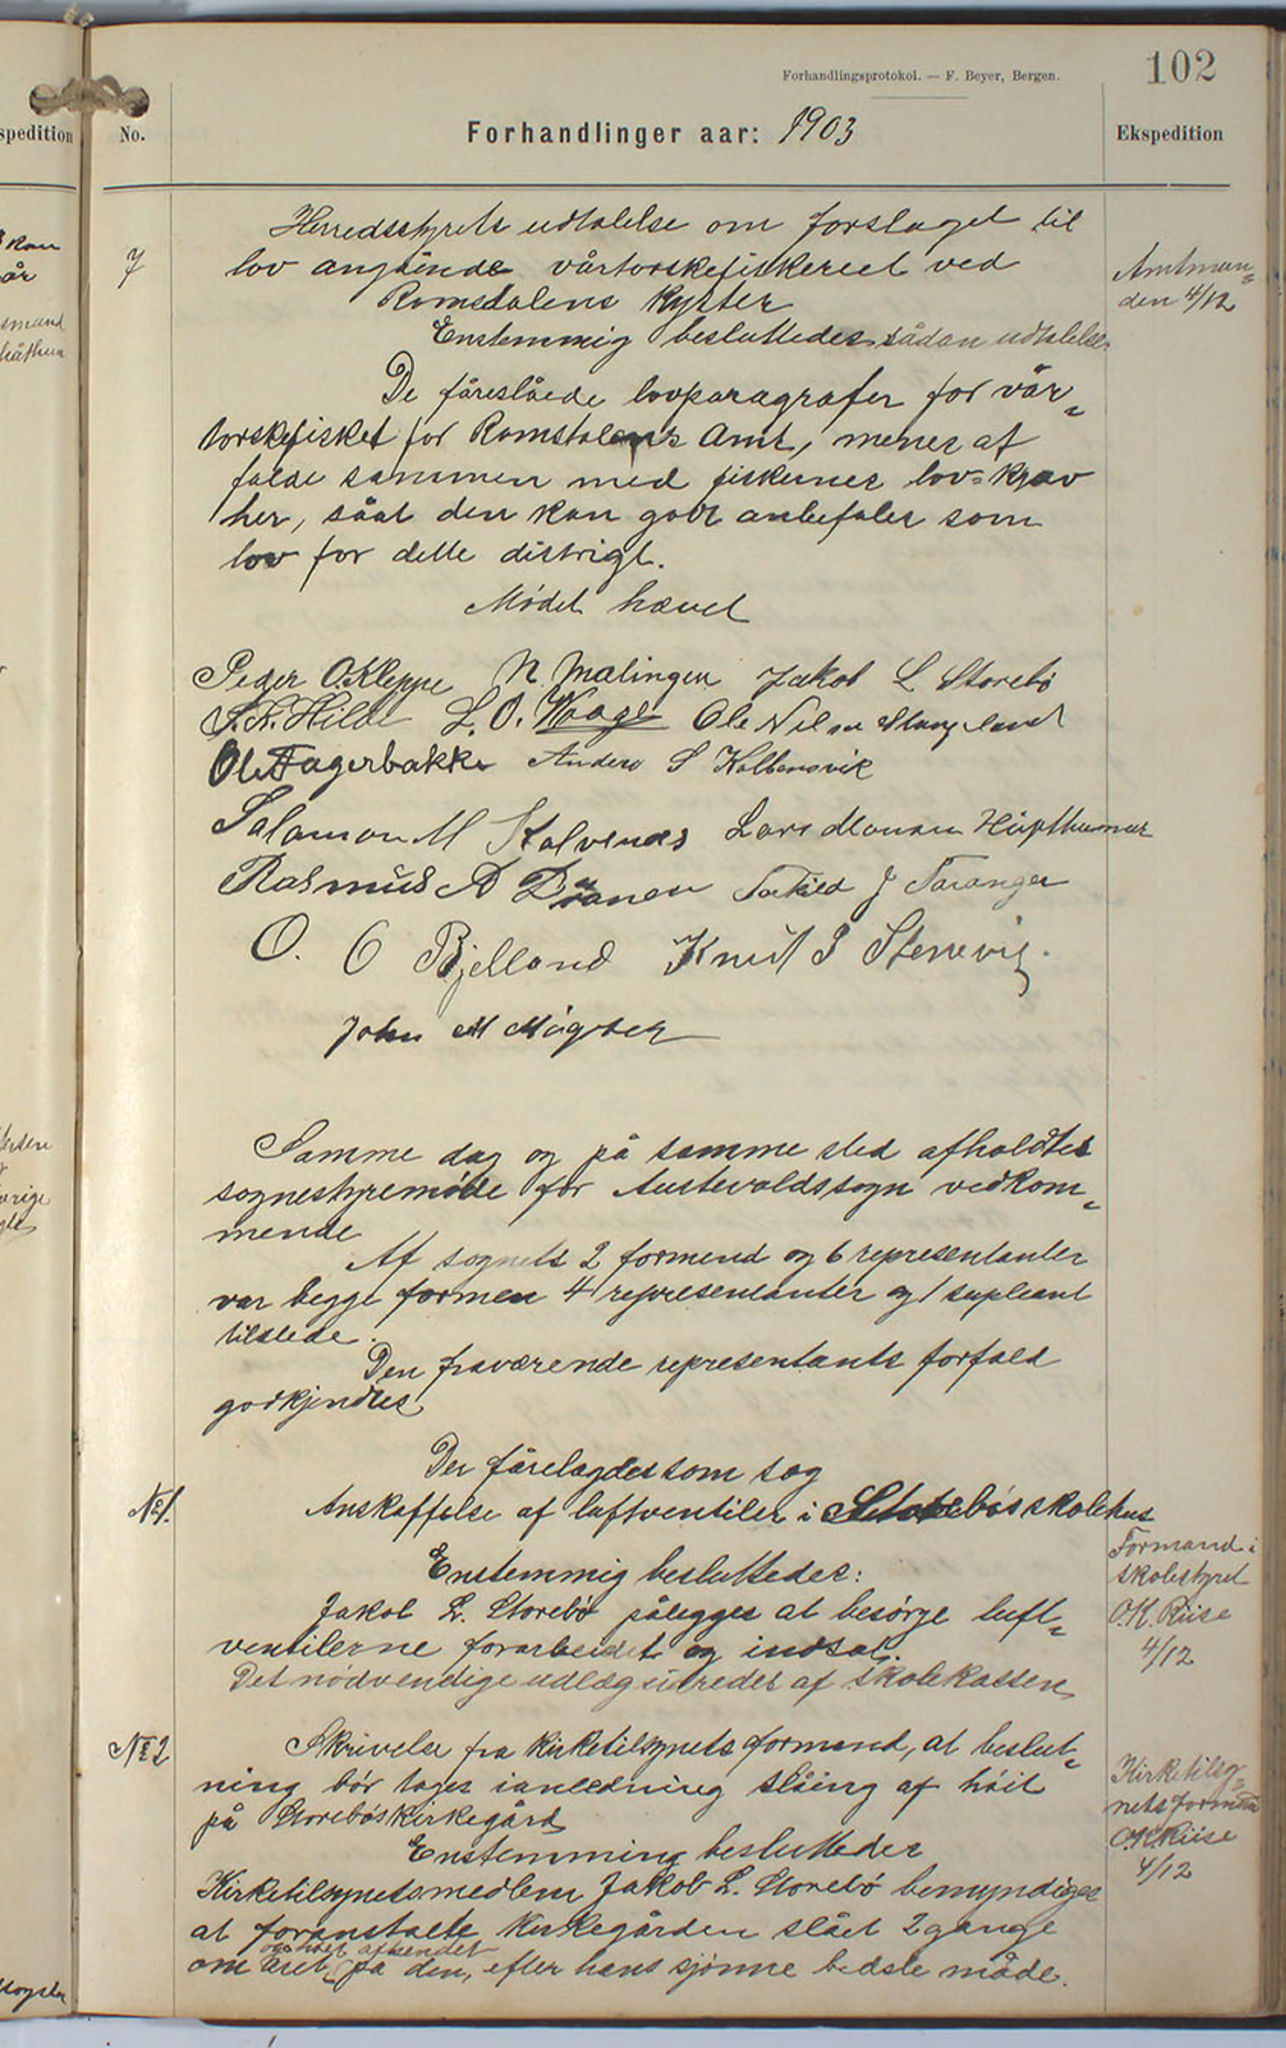 102
Forhandlingsprotokol. — F. Beyer, Bergen.
spedition
No.
Forhandlinger aar: 1903
Ekspedition
Herredsstyrets udtalelse om forslaget til
7 lov angående vårtorskefiskeriet ved
Romsdalens Kyster
Amtman=
den 4/12
Enstemmig besluttedes sådan udtalelse:
De föreslåede lovparagrafer for vår=
torskefisket for Romsdalens Amt, menes at
falde sammen med fiskernes lov=krav
her, såat den kan godt anbefales som
lov for dette distrigt.
Mødet hævet
Peder O. Kleppe N. Malingen Jakob L Storebö
S. N. Hilde L. O. Waage Ole Nilsen Stangeland
Ole Fagerbakke Anders S Kolbensvik
Salamon M Kalvenes Lars Monsen Hüfthamar
Rasmus A Drönen Torkild J Taranger
O. O Bjelland Knut J Stenevig.
John M Mögster
Samme dag og på samme sted afholdtes
sognestyremöde for Austevoldssogn vedkom=
mende
Af sognets 2 formend og 6 representanter
var begge formen 4 representanter og 1 supleant
tilstede.
Den fraværende representants forfald
godkjendtes
Der förelagdes som sag
No 1. Anskaffelse af luftventiler i Storebös skolehus
Formand i
skolestyret
O.K. Riise
4/12
Enstemmig besluttedes:
Jakob L. Storebö pålegges at besörge luft=
ventilerne forarbeidet og indsat.
Det nödvendige udlæg udredes af skolekassen
No 2 Skrivelse fra kirketilsynets formand, at beslut=
ning bör tages i anledning slåing af höit
på Storebös kirkegård
Kirketilsy=
nets formand
O.K. Riise
4/12
Enstemming besluttedes
Kirketilsynetsmedlem Jakob L. Storebö bemyndiges
at foranstalte Kirkegården slået 2 gange
og höet afhendet
om året på den, efter hans sjönne bedste måde.